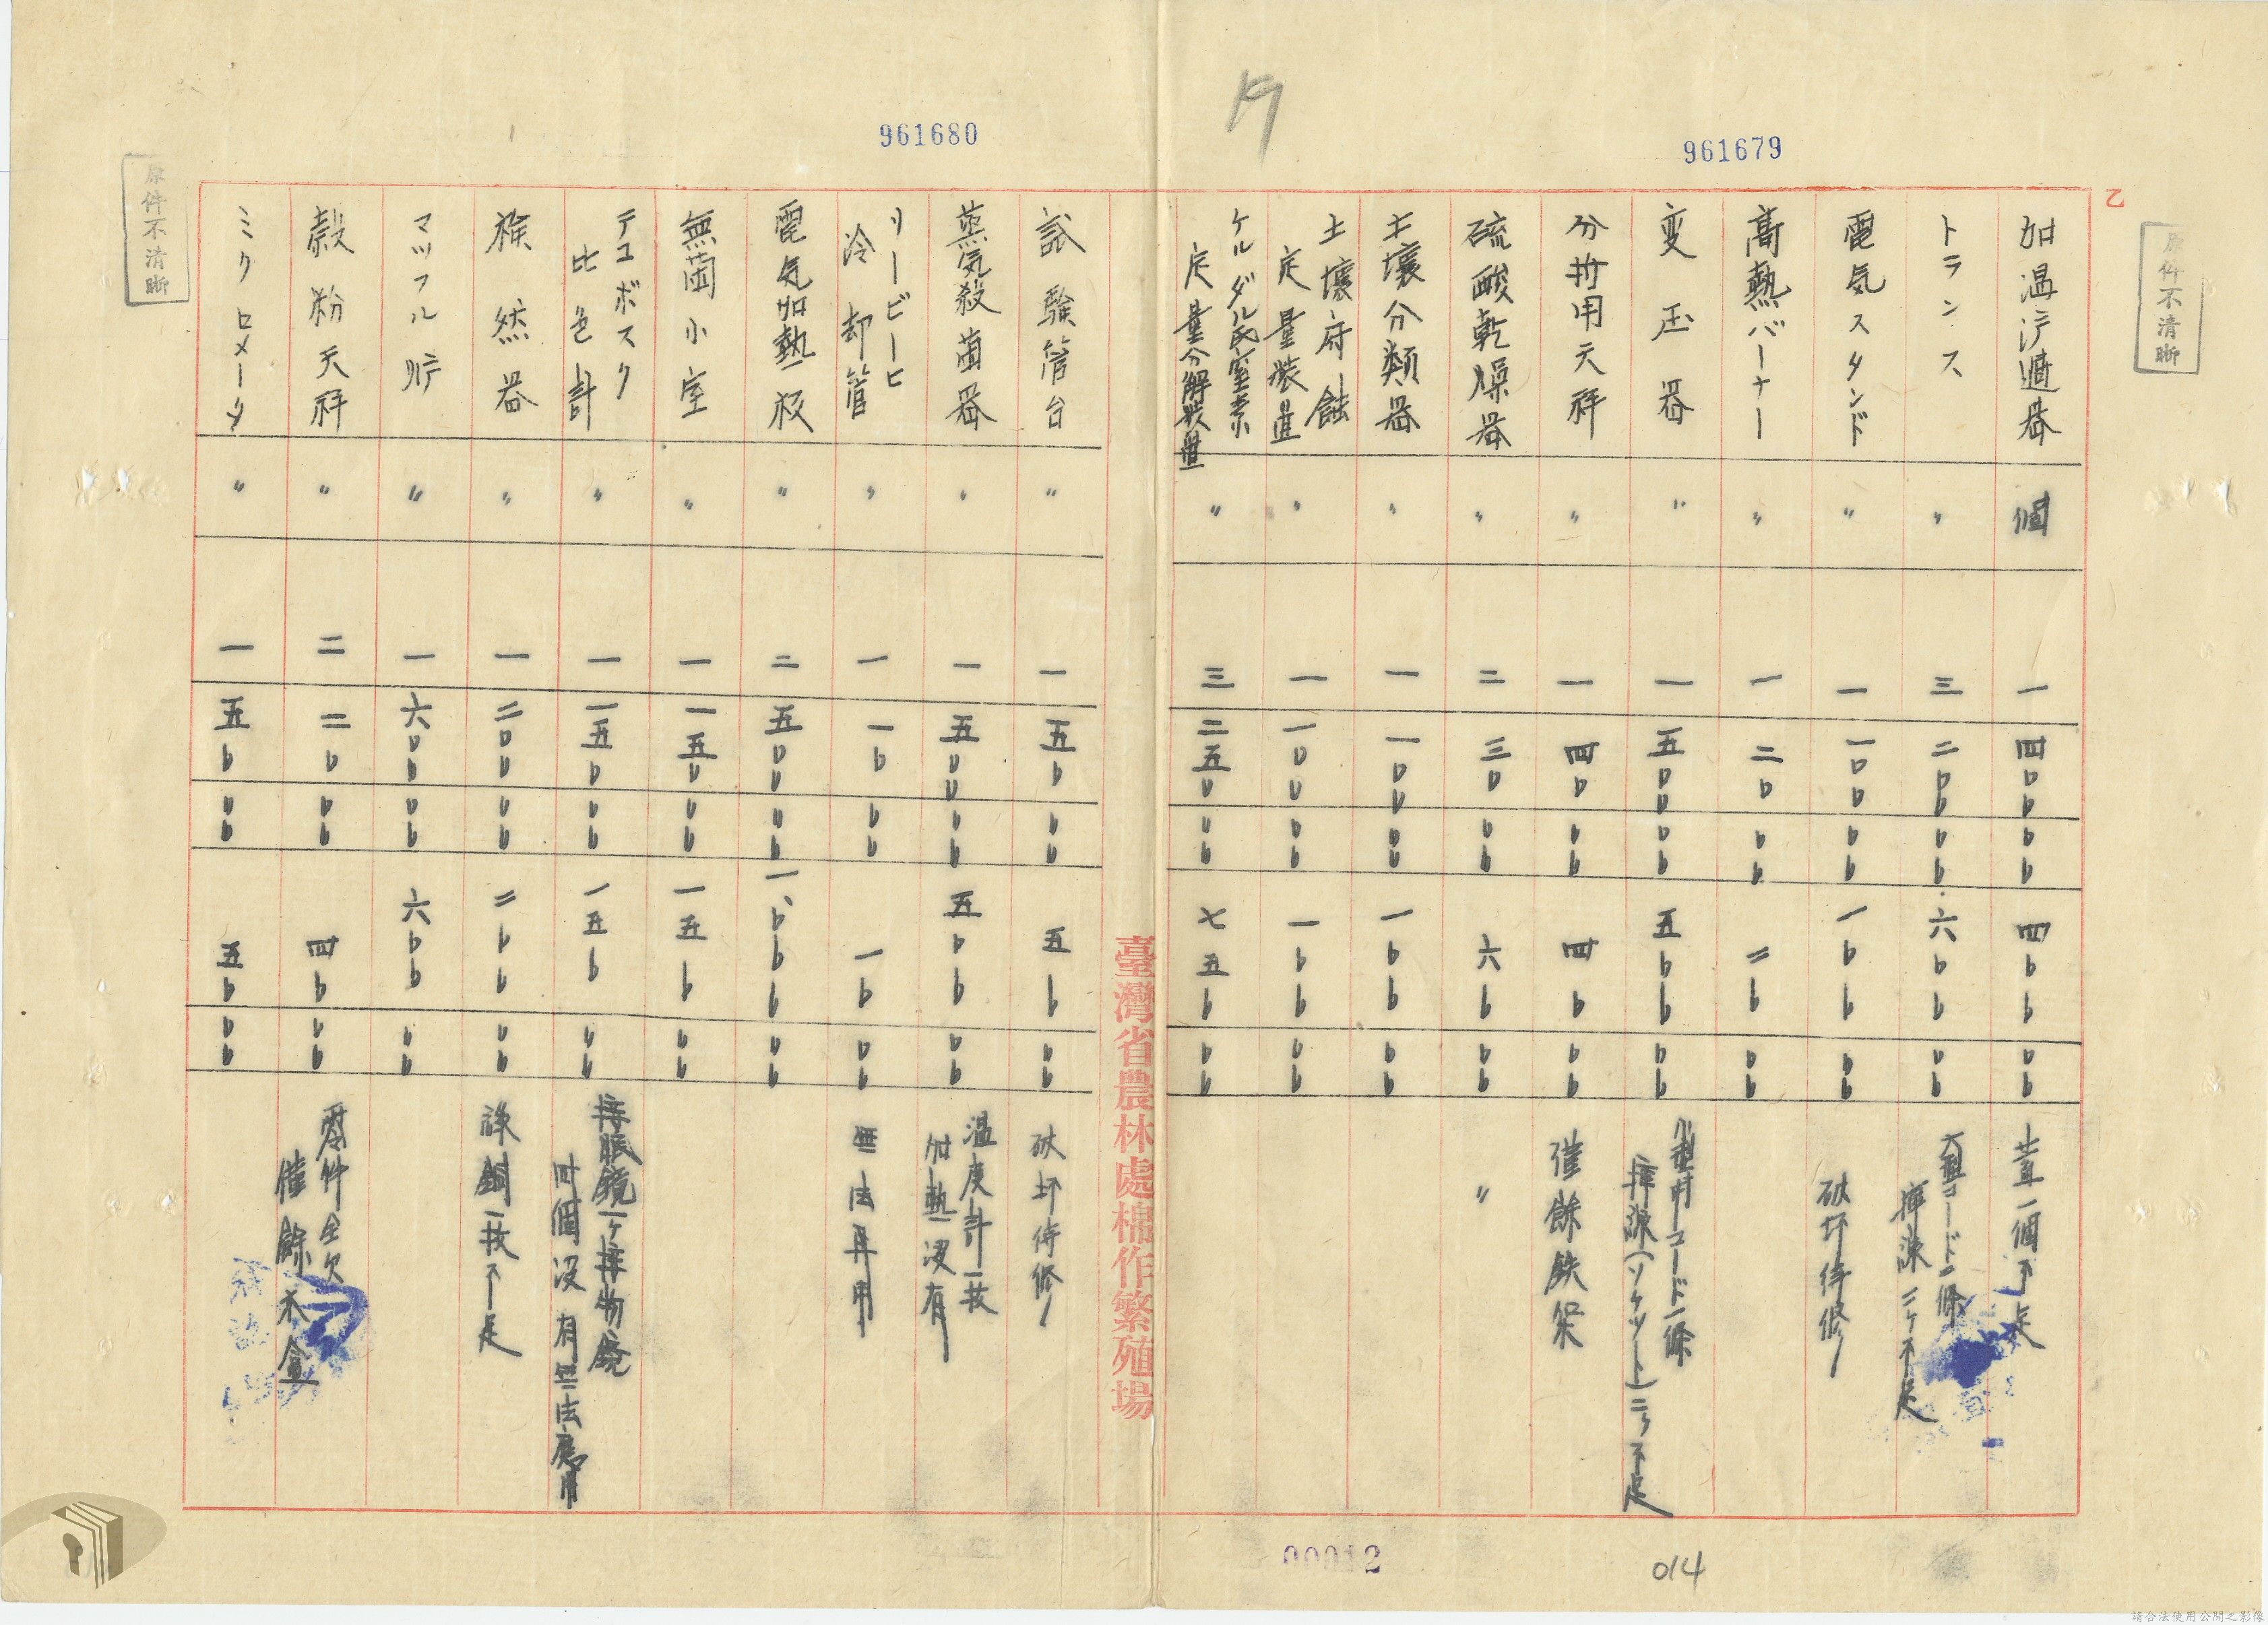 19
961679
961680
乙
原件不清晰
原件不清晰
加温浐過器 個 一 四〇〇 〇〇 四〇〇 〇〇 蓋一個不足
トランス 〃 三 二〇〇 〇〇 六〇〇 〇〇 大型コード二條
挿源二ケ不足
電気スタンド 〃 一 一〇〇 〇〇 一〇〇 〇〇 破坏待修
高熱バーナー 〃 一 二〇 〇〇 二〇 〇〇
变圧器 〃 一 五〇〇 〇〇 五〇〇 〇〇 小型コード一條
挿源(ソケツート)二ケ不足
分析用天秤 〃 一 四〇 〇〇 四〇 〇〇 僅餘鉄架
硫酸乾燥器 〃 二 三〇 〇〇 六〇 〇〇 〃
土壤分類器 〃 一 一〇〇 〇〇 一〇〇 〇〇
土壤府蝕
定量装置 〃 一 一〇〇 〇〇 一〇〇 〇〇
ケルダル氏窒素
定量分解装置 〃 三 二五〇 〇〇 七五〇 〇〇
臺灣省農林處棉作繁殖場
試験管台 〃 一 五〇 〇〇 五〇 〇〇 破坏待修
蒸気殺菌器 〃 一 五〇〇 〇〇 五〇〇 〇〇 温度計一枝
加熱没有
リービーヒ
冷却管 〃 一 一〇 〇〇 一〇 〇〇 無法再用
電気加熱板 〃 二 五〇〇 〇〇 一、〇〇〇 〇〇
無菌小室 〃 一 一五〇 〇〇 一五〇 〇〇
テユボスク
比色計 〃 一 一五〇 〇〇 一五〇 〇〇 接眼鏡一ケ接物鏡
四個没有無法應用
〃 一 二〇〇 〇〇 二〇〇 〇〇 銅一枝不足
マツフル 〃 一 六〇〇 〇〇 六〇〇 〇〇
穀粉天秤 〃 二 二〇 〇〇 四〇 〇〇 零件全欠
僅餘木盒
ミクロメータ 〃 一 五〇 〇〇 五〇 〇〇
00012
014
請合法使用公開之影像